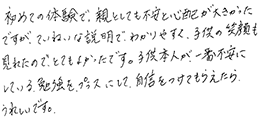 初めての体験で、親としても不安と心配が大きかった
ですが、ていねいな説明で、わかりやすく、子供の笑顔も
見れたので、とてもよかったです。子供本人が、一番不安に
している、勉強を、プラスにして、自信をつけてもらえたら、
うれしいです。